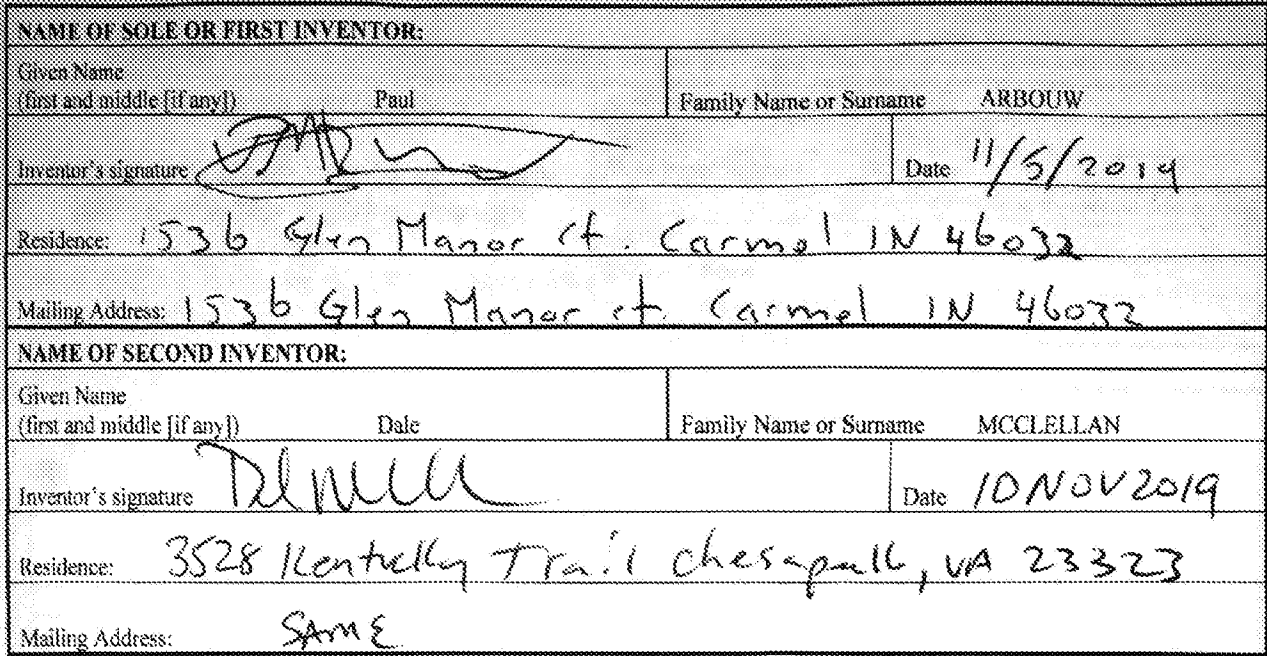 NAME OF SOLE OR FIRST INVENTOR:
Given Name
(first and middle [if any]) Paul Family Name or Surname ARBOUW
Inventor's signature Date 11/5/2019
Residence: 1536 Glen Manor ct. Carmel IN 46032
Mailing Address: 1536 Glen Manor ct. Carmel IN 46032
NAME OF SECOND INVENTOR:
Given Name
(first and middle [if any]) Dale Family Name or Surname MCCLELLAN
Inventor's signature Date 10 NOV 2019
Residence: 3528 Kentucky Trail Chesapeake, VA 23323
Mailing Address: SAME